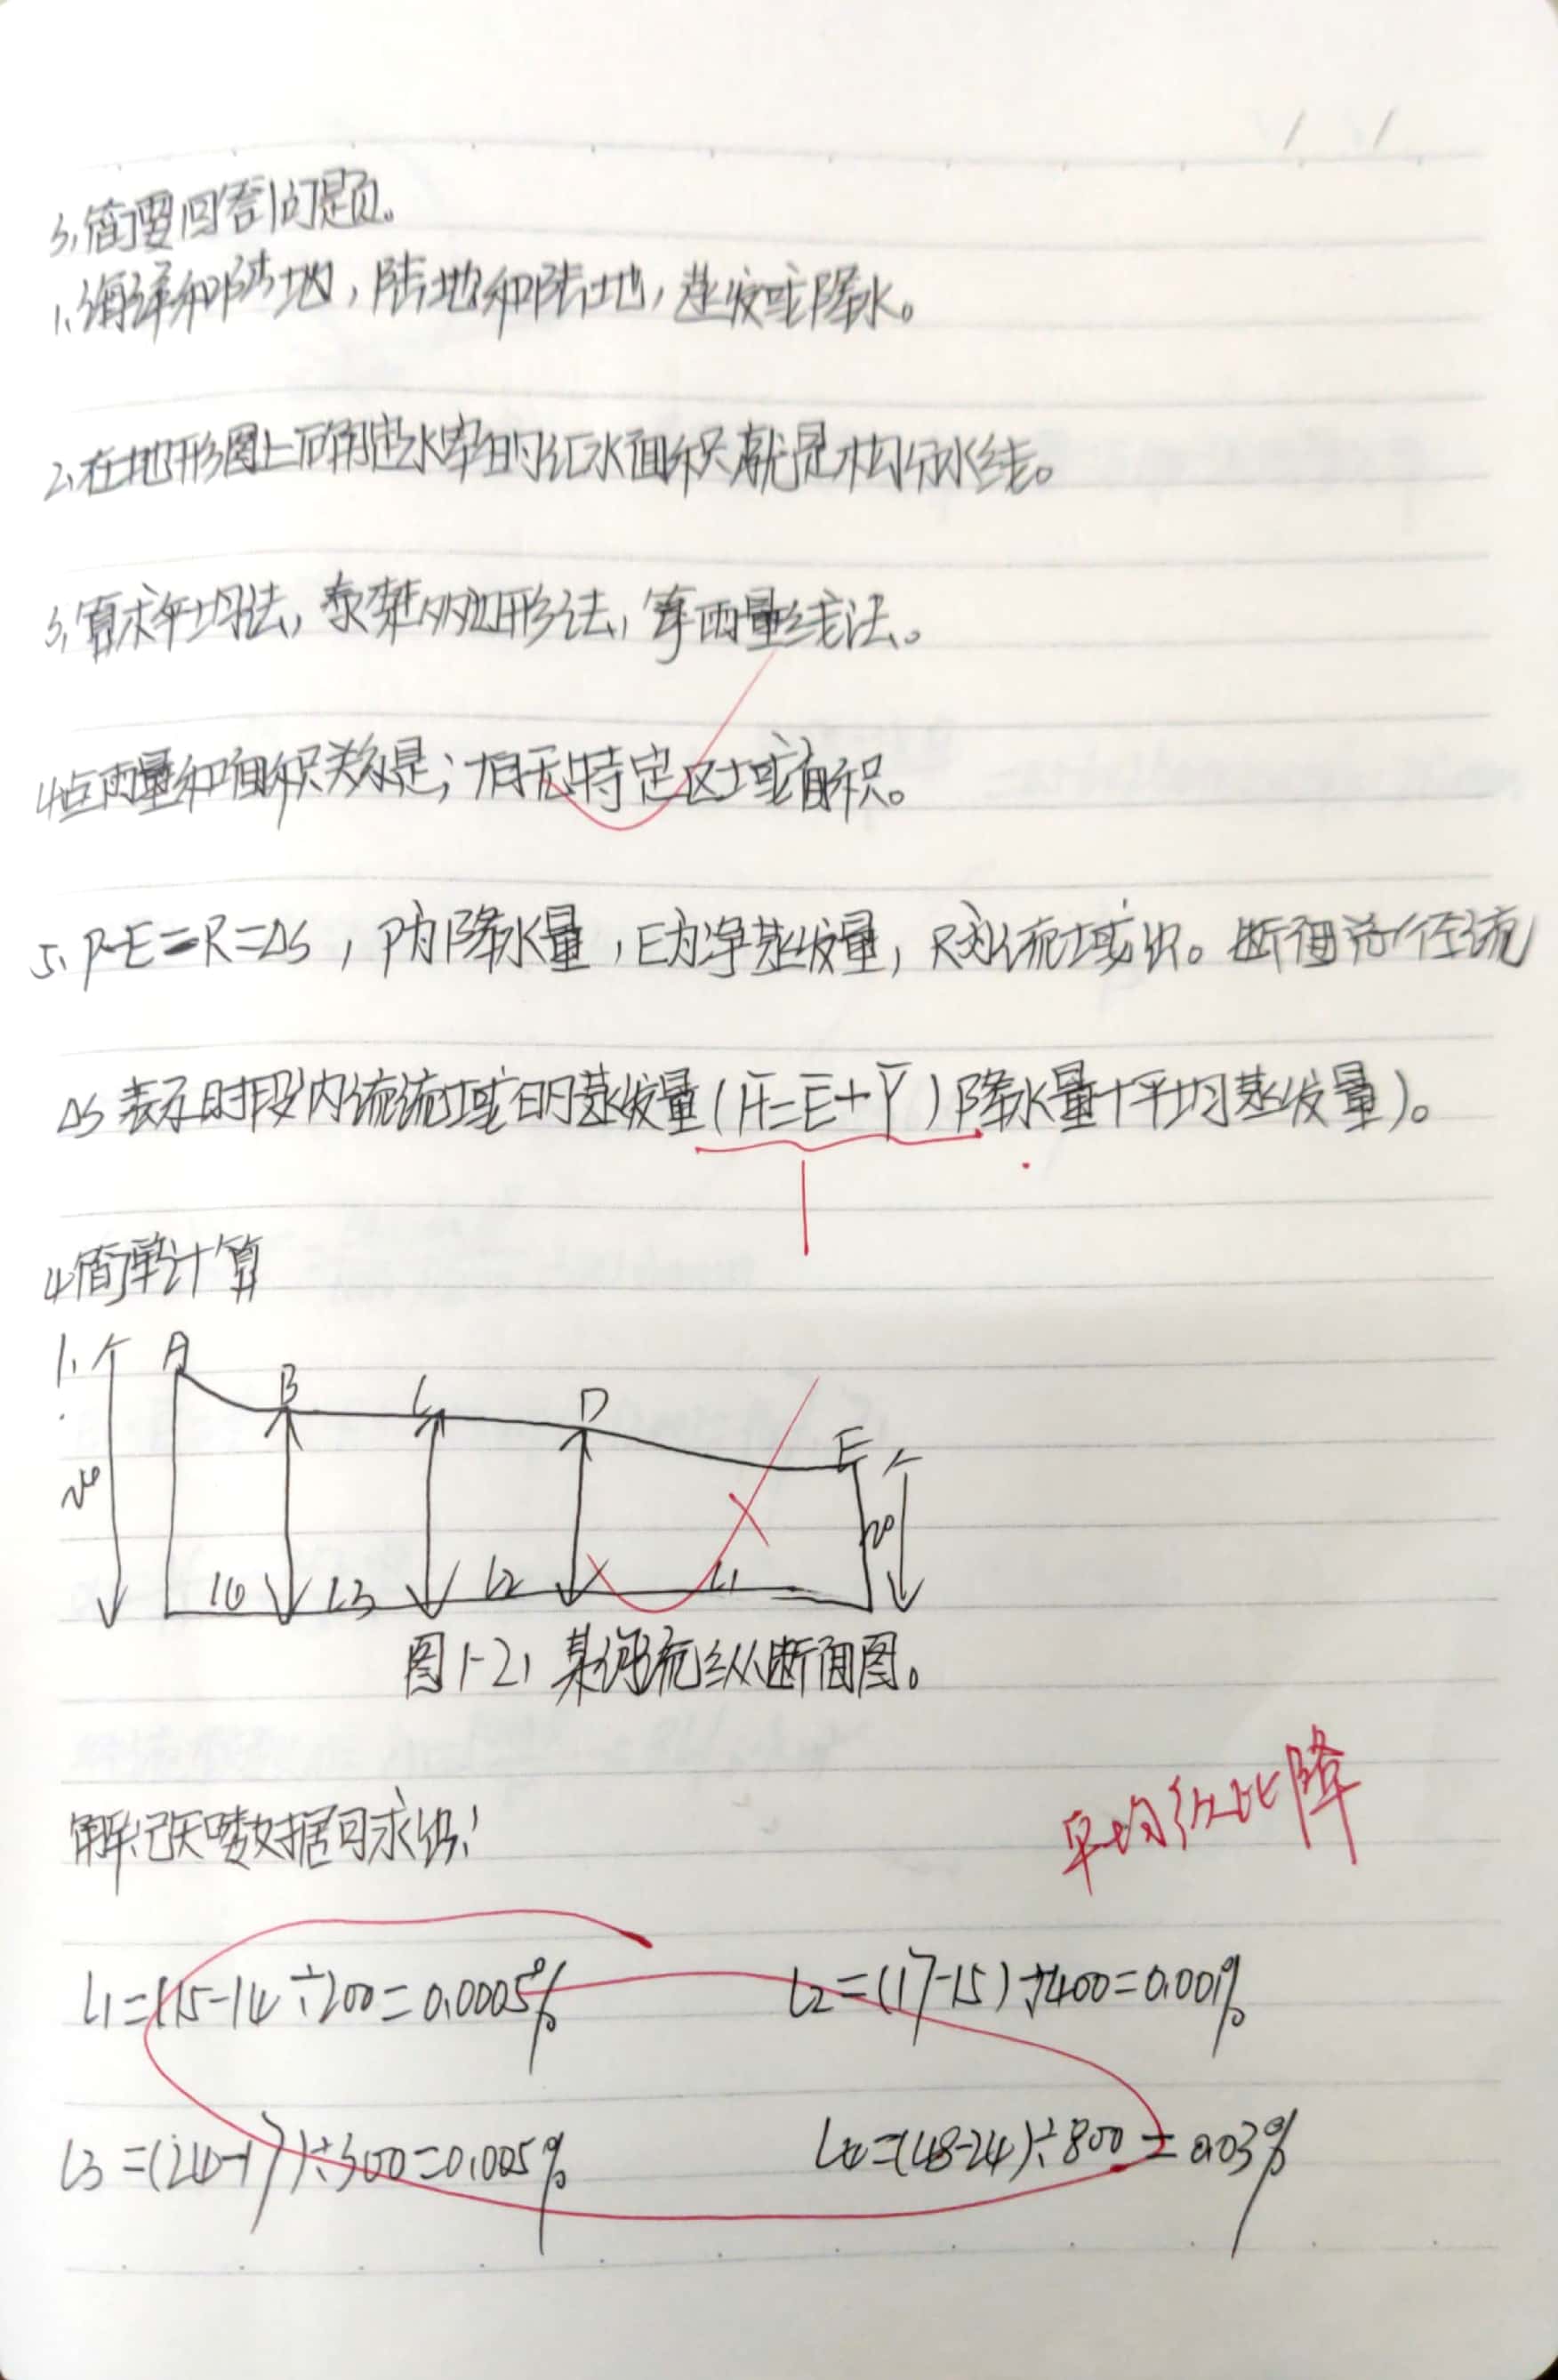 3、简要回答问题。
1、海洋和陆地，陆地和陆地，蒸发或降水。
2、在地形图上确定水库的汇水面积就是构分水线。
3、算术平均法，泰森多边形法，等雨量线法。
4、点雨量和面积关系是；有无特定区域面积。
5、P-E=R=ΔS，P为降水量，E为净蒸发量，R为流域出。断面
ΔS表示时段内流流域的蒸发量(H̅=E̅+Y̅)降水量+平均蒸发量)。
4、简单计算
1、 A B C D E
L3 L2 L1
图1-21 某河流纵断面图。
平均纵比降
数据可求
L1=(15-14÷200=0.0005% L2=(17-15)÷400=0.001%
L3=(24-17)÷300=0.005% L4=(48-24)÷800=0.03%